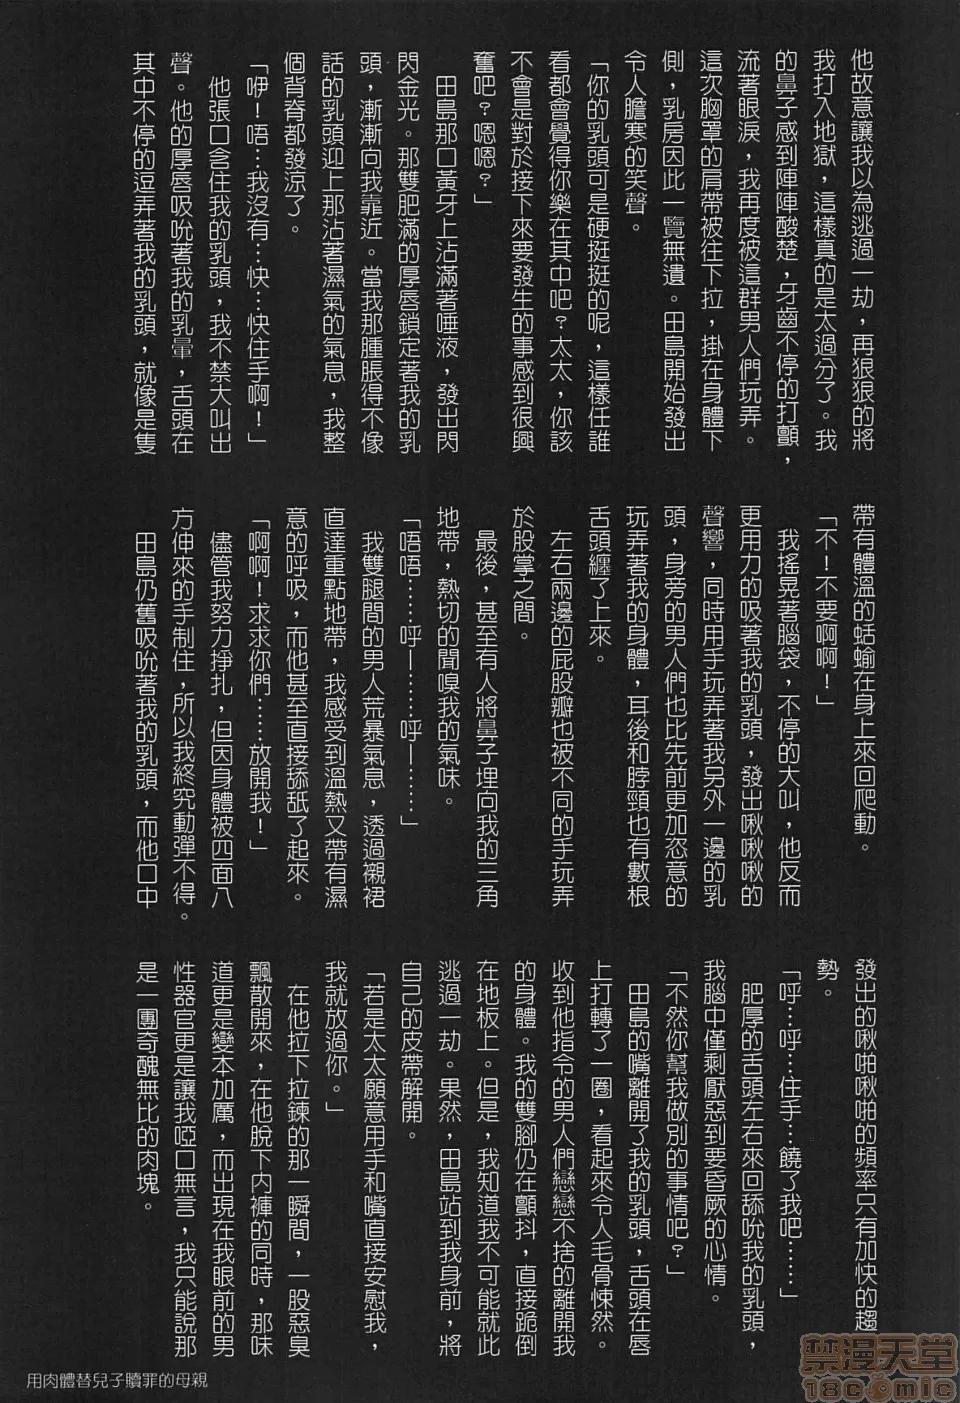 他故意讓我以為逃過一劫，再狠狠的將
我打入地獄，這樣真的是太過分了。我
的鼻子感到陣陣酸楚，牙齒不停的打顫，
流著眼淚，我再度被這群男人們玩弄。
這次胸罩的肩帶被往下拉，掛在身體下
側，乳房因此一覽無遺。田島開始發出
令人膽寒的笑聲。
「你的乳頭可是硬挺挺的呢，這樣任誰
看都會覺得你樂在其中吧？太太，你該
不會是對於接下來要發生的事感到很興
奮吧？嗯嗯？」
田島那口黃牙上沾滿著唾液，發出閃
閃金光。那雙肥滿的厚唇鎖定著我的乳
頭，漸漸向我靠近。當我那腫脹得不像
話的乳頭迎上那沾著濕氣的氣息，我整
個背脊都發涼了。
「咿！唔…我沒有…快…快住手啊！」
他張口含住我的乳頭，我不禁大叫出
聲。他的厚唇吸吮著我的乳暈，舌頭在
其中不停的逗弄著我的乳頭，就像是隻
帶有體溫的蛞蝓在身上來回爬動。
「不！不要啊啊！」
我搖晃著腦袋，不停的大叫，他反而
更用力的吸著我的乳頭，發出啾啾啾的
聲響，同時用手玩弄著我另外一邊的乳
頭，身旁的男人們也比先前更加恣意的
玩弄著我的身體，耳後和脖頸也有數根
舌頭纏了上來。
左右兩邊的屁股瓣也被不同的手玩弄
於股掌之間。
最後，甚至有人將鼻子埋向我的三角
地帶，熱切的聞嗅我的氣味。
「唔唔……呼ー……呼ー……」
我雙腿間的男人荒暴氣息，透過襯裙
直達重點地帶，我感受到溫熱又帶有濕
意的呼吸，而他甚至直接舔舐了起來。
「啊啊！求求你們……放開我！」
儘管我努力掙扎，但因身體被四面八
方伸來的手制住，所以我終究動彈不得。
田島仍舊吸吮著我的乳頭，而他口中
發出的啾啪啾啪的頻率只有加快的趨
勢。
「呼…呼…住手…饒了我吧……」
肥厚的舌頭左右來回舔吮我的乳頭，
我腦中僅剩厭惡到要昏厥的心情。
「不然你幫我做別的事情吧？」
田島的嘴離開了我的乳頭，舌頭在唇
上打轉了一圈，看起來令人毛骨悚然。
收到他指令的男人們戀戀不捨的離開我
的身體。我的雙腳仍在顫抖，直接跪倒
在地板上。但是，我知道我不可能就此
逃過一劫。果然，田島站到我身前，將
自己的皮帶解開。
「若是太太願意用手和嘴直接安慰我，
我就放過你。」
在他拉下拉鍊的那一瞬間，一股惡臭
飄散開來，在他脫下內褲的同時，那味
道更是變本加厲，而出現在我眼前的男
性器官更是讓我啞口無言，我只能說那
是一團奇醜無比的肉塊。
用肉體替兒子贖罪的母親
禁漫天堂
18comic